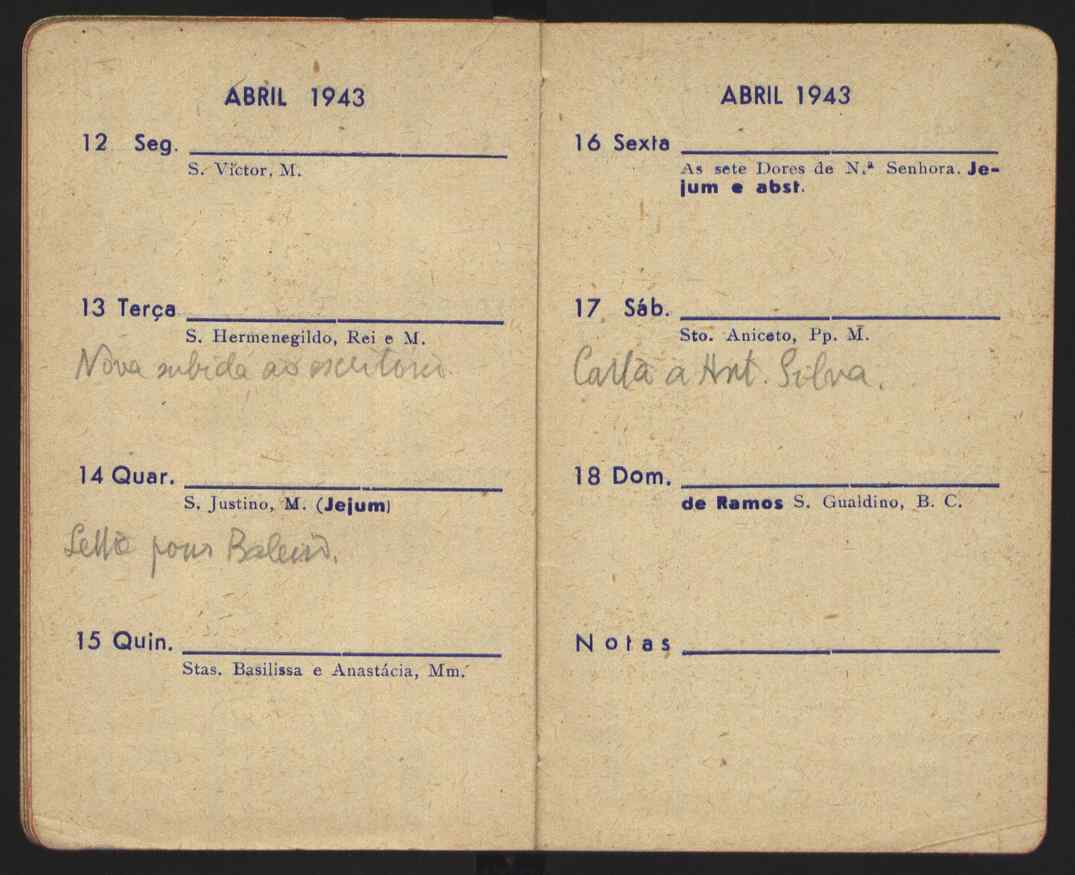 ABRIL 1943
12 Seg.
S. Víctor, M.
13 Terça
S. Hermenegildo, Rei e M.
Nova subida ao escritorio.
14 Quar.
S. Justino, M. (Jejum)
15 Quin.
Stas. Basilissa e Anastácia, Mm.
ABRIL 1943
16 Sexta
As sete Dores de N.ª Senhora. Je-
jum e abst.
17 Sáb.
Sto. Aniceto, Pp. M.
Carta a Ant. Silva.
18 Dom.
de Ramos S. Gualdino, B. C.
Notas